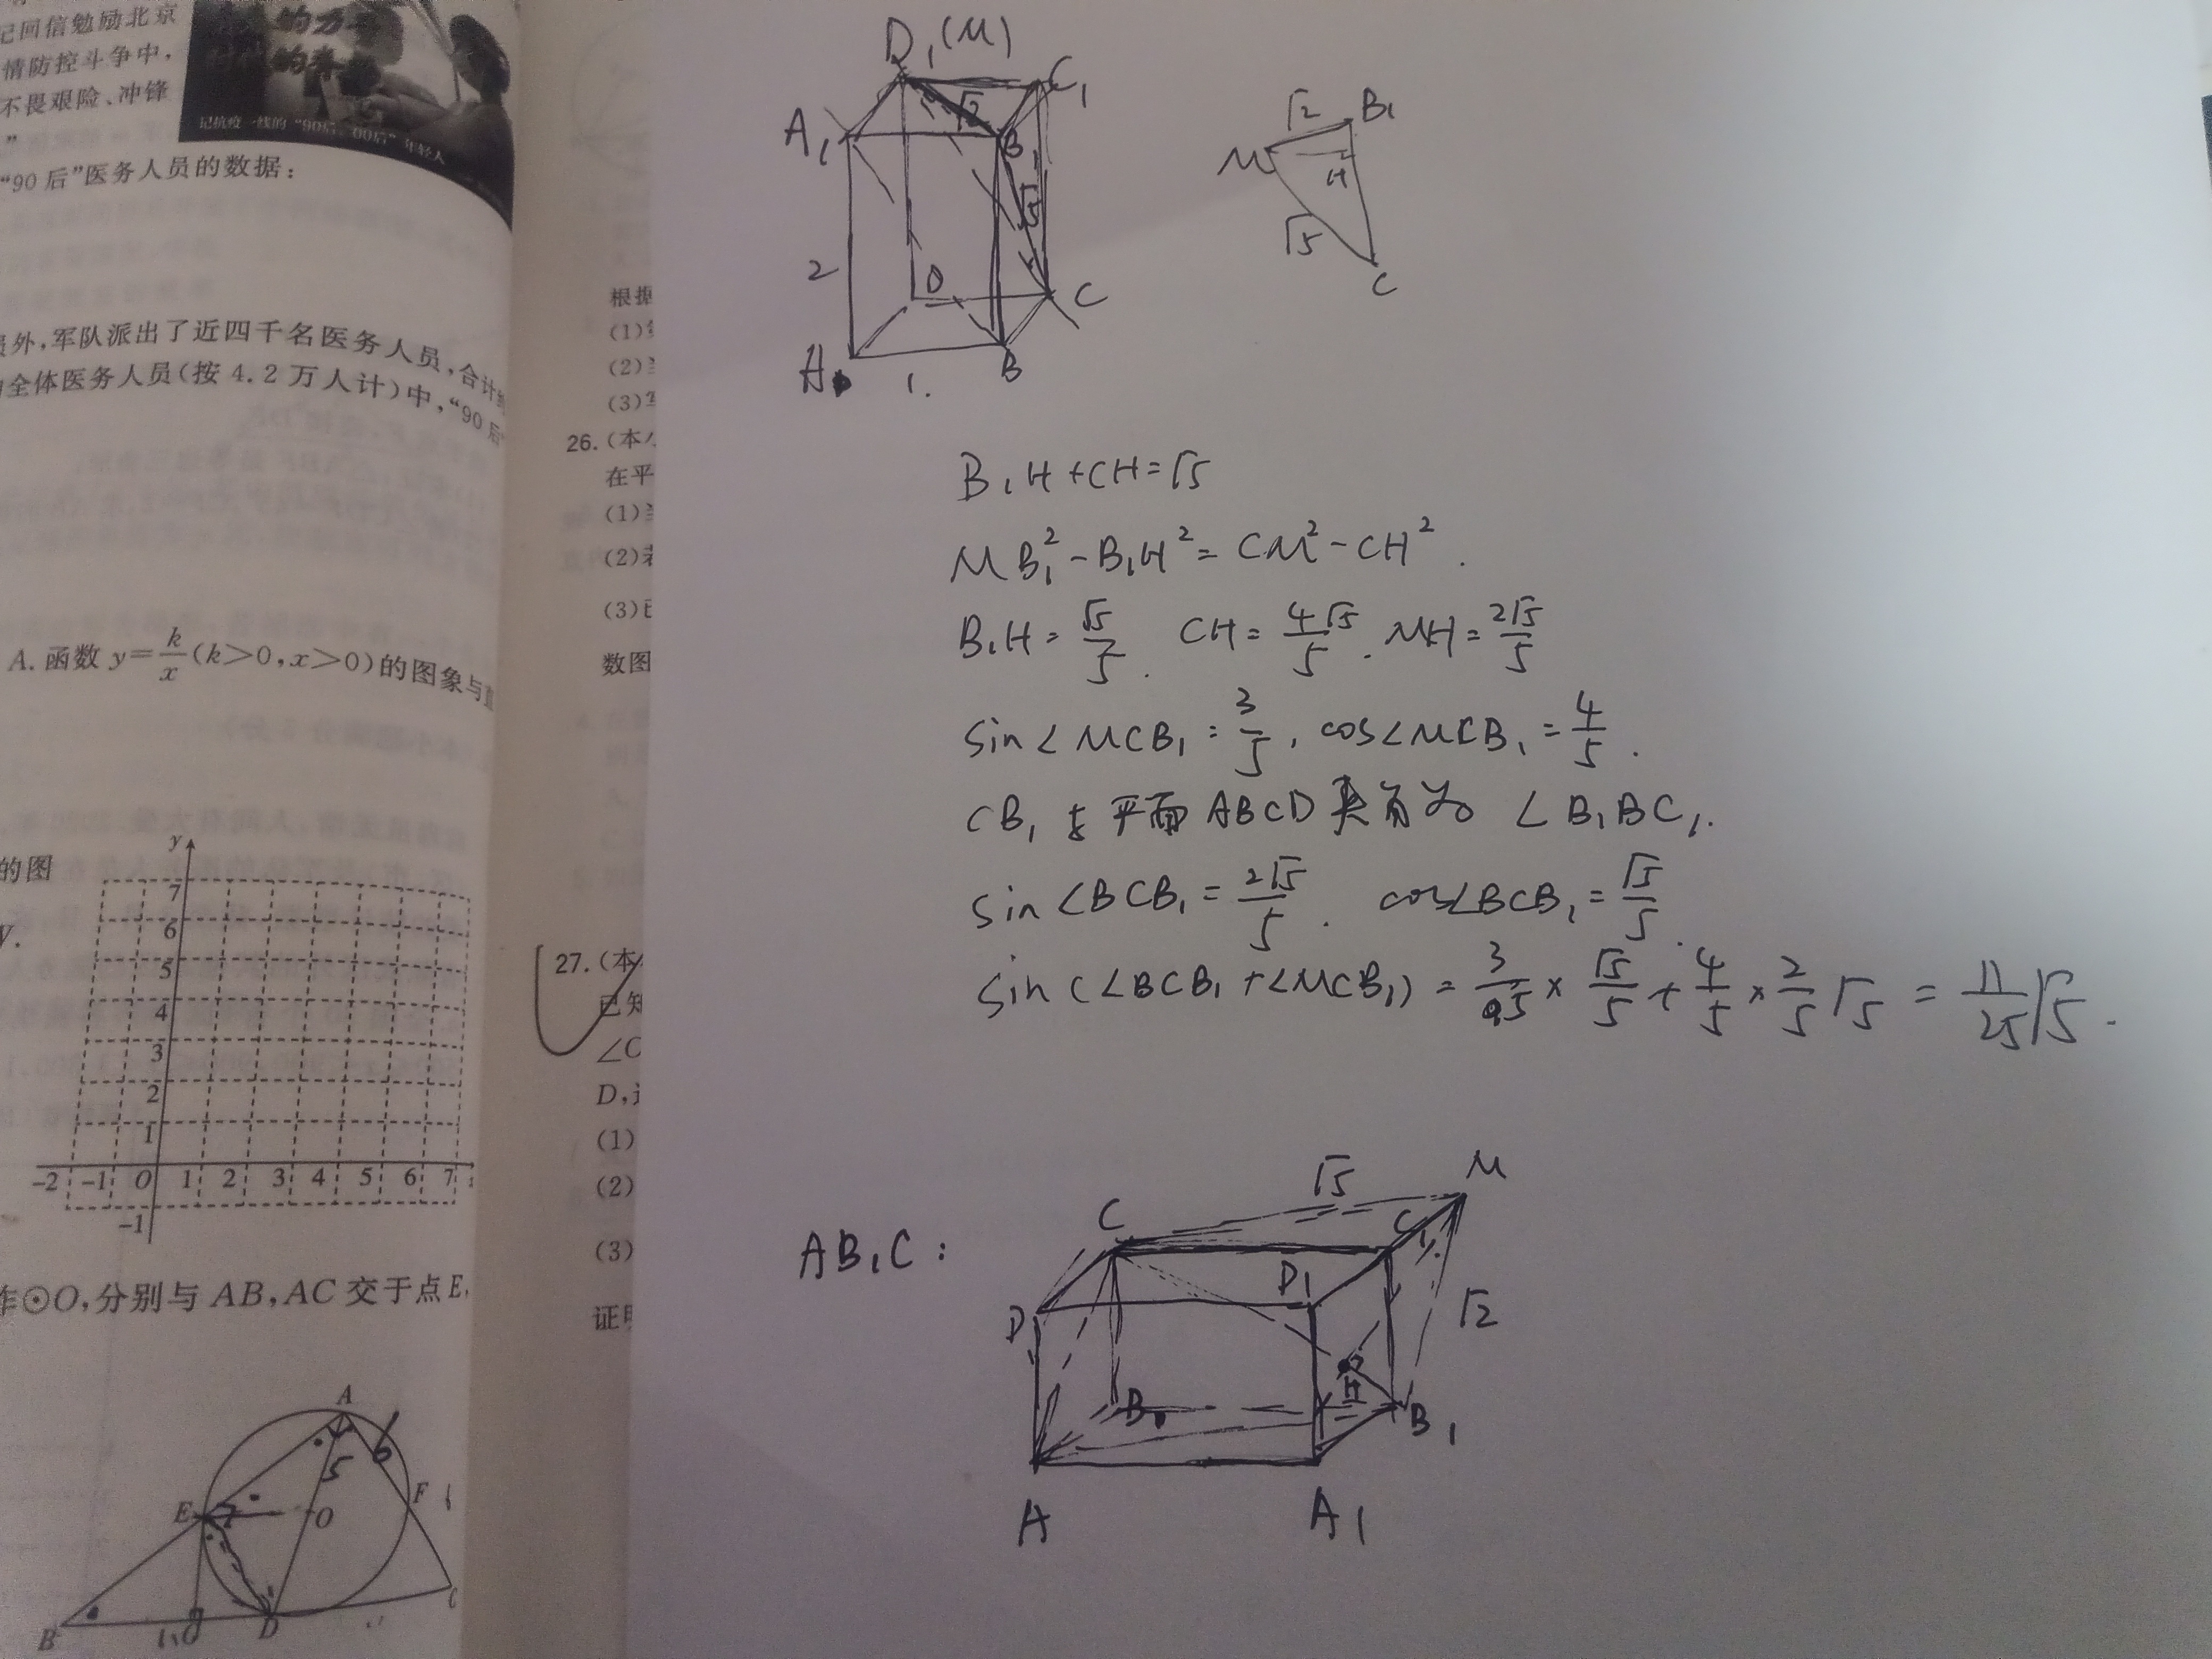 记回信勉励北京
情防控斗争中，
不畏艰险、冲锋
”
记抗疫一线的“90后、00后”年轻人
“90后”医务人员的数据：
员外，军队派出了近四千名医务人员，合计约
全体医务人员（按4.2万人计）中，“90后
A. 函数 y=k/x(k>0,x>0)的图象与直
的图
y
7
6
5
4
3
2
1
-2 -1 O 1 2 3 4 5 6 7
-1
作⊙O,分别与AB,AC交于点E,
A
5 6
E O F
B D C
根据
(1)
(2)
(3)
26.(本小
在平
(1)当
(2)若
(3)已
数图
27.(本
已知
∠C
D,过
(1)
(2)
(3)
证明
D₁(M)
C₁
A₁ √2 B₁
√5
2
D C
A 1. B
√2 B₁
M H
√5
C
B₁H+CH=√5
MB₁²-B₁H²=CM²-CH².
B₁H=√5/5. CH=4√5/5. MH=2√5/5
sin∠MCB₁=3/5, cos∠MCB₁=4/5.
CB₁与平面ABCD夹角为∠B₁BC₁.
sin∠BCB₁=2√5/5. cos∠BCB₁=√5/5.
sin(∠BCB₁+∠MCB₁)=3/5×√5/5+4/5×2/5√5=11/25√5.
AB₁C:
√5 M
C C₁
D D₁ √2
H
B B₁
A A₁